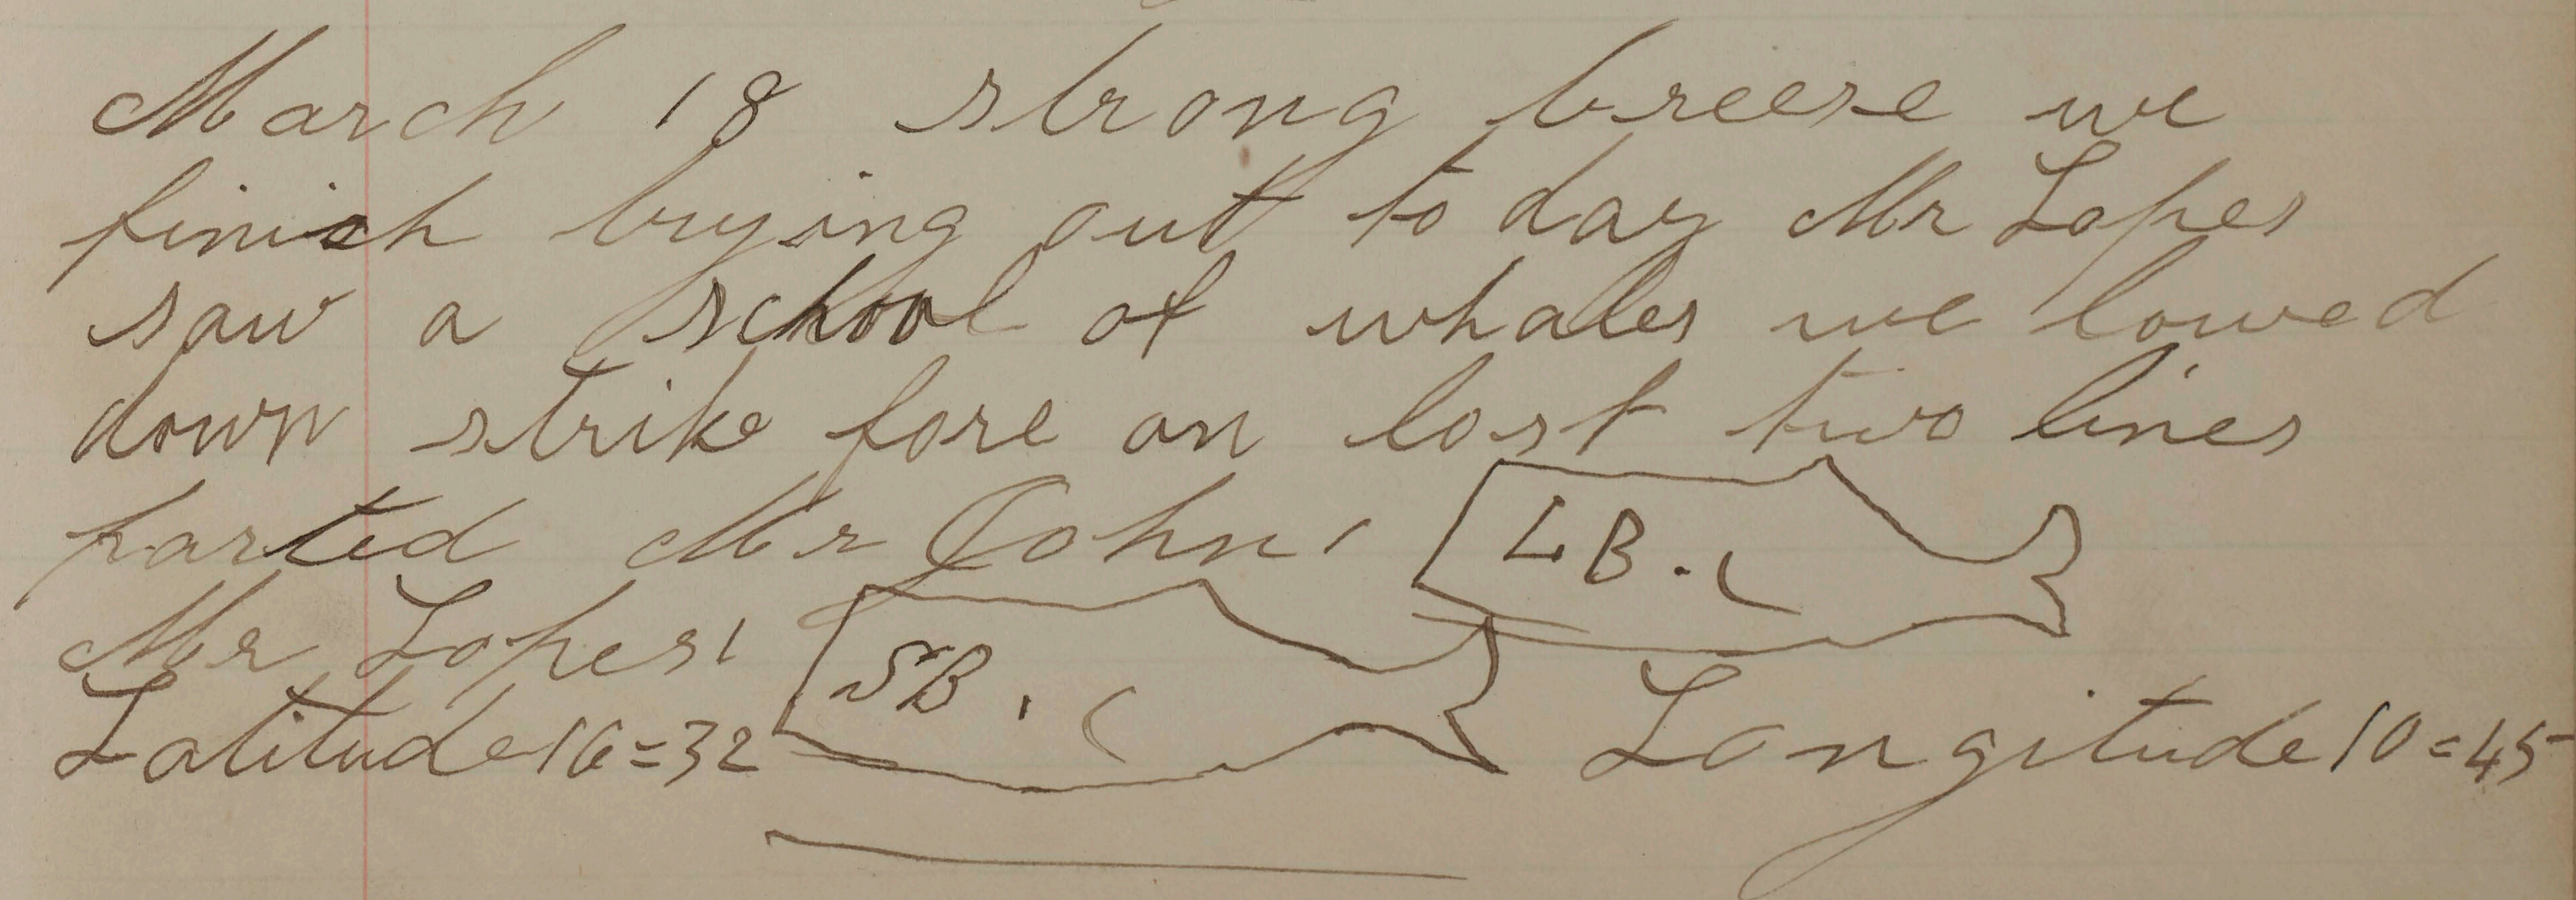 March 18 strong breese we
finich trying out to day Mr Lopes
saw a school of whales we lowed
down strike fore an lost two lines
parted Mr John 1 LB.
Mr Lopes 1 SB.
Latitude 16=32 Longitude 10=45